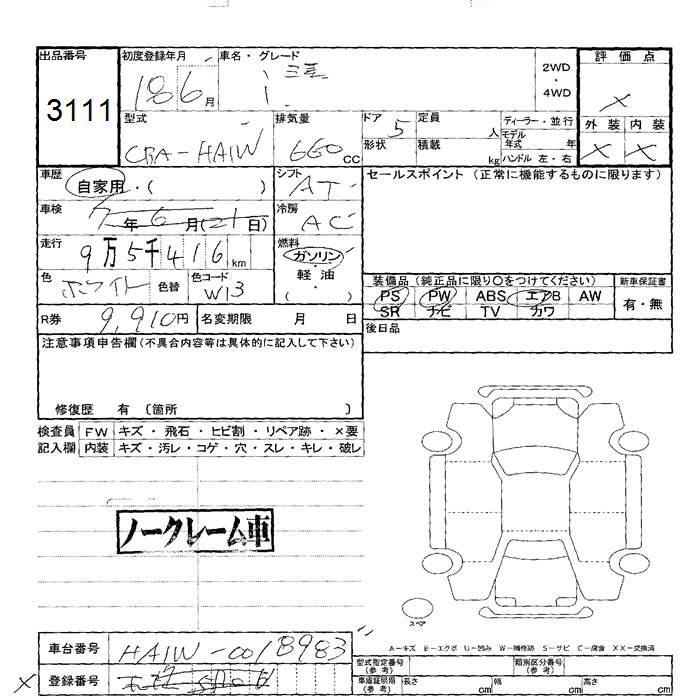 出品番号
3111
初度登録年月
18 6 月
車名・グレード
i 三菱
2WD
・
4WD
評価点
×
外装 内装
× ×
型式
CBA-HA1W
排気量
660 cc
ドア 5
形状
定員 人
積載 kg
ディーラー・並行
モデル年式 年
ハンドル 左・右
車歴
自家用・( )
シフト
AT
セールスポイント (正常に機能するものに限ります)
車検
7年6月(21日)
冷房
AC
走行
9万5千416km
燃料
ガソリン
軽油
( ・ )
色
ホワイト
色替
色コード
W13
装備品 (純正品に限り○をつけてください)
PS PW ABS エアB AW
SR ナビ TV カワ
新車保証書
有・無
R券
9,910円
名変期限 月 日
後日品
注意事項申告欄(不具合内容等は具体的に記入して下さい)
修復歴 有 〔箇所 〕
検査員記入欄
FW キズ・飛石・ヒビ割・リペア跡・×要
内装 キズ・汚レ・コゲ・穴・スレ・キレ・破レ
ノークレーム車
スペア
A-キズ E-エクボ U-凹み W-補修跡 S-サビ C-腐食 XX-交換済
車台番号
HA1W-0018983
型式指定番号(参考)
類別区分番号(参考)
× 登録番号
車庫証明用(参考)
長さ cm 幅 cm 高さ cm